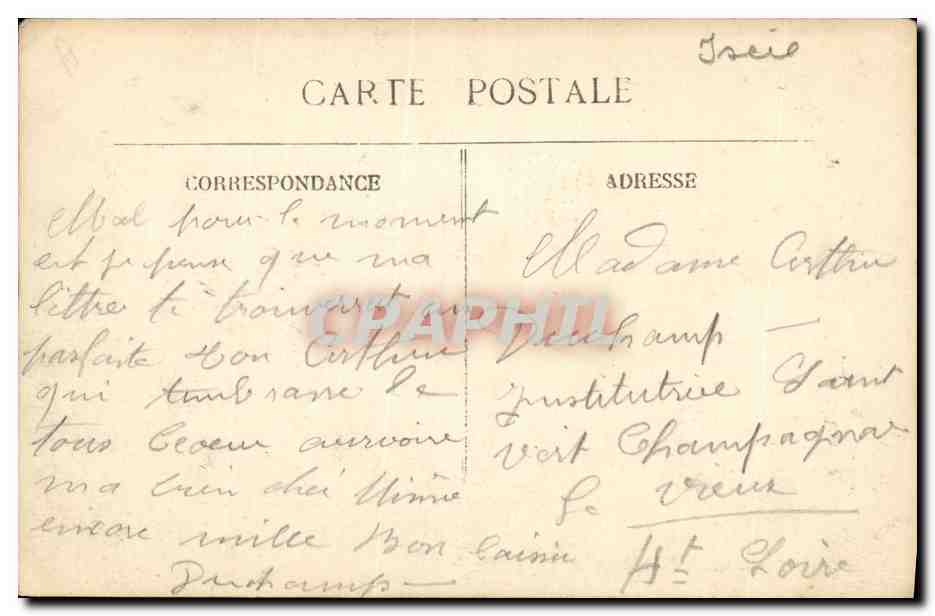 CARTE POSTALE
CORRESPONDANCE
Mal pour le moment
est je pense que ma
lettre te trouverat en
parfaite ton Arthur
qui tembrasse de
tous coeur aurvoire
ma bien cher Mimie
encore mille Bon Caisin
Duchamp
ADRESSE
Madame Arthur
Duchamp
Institutrice Saint
Vert Champagnac
le Vieux
Hte Loire
CPAPHIL